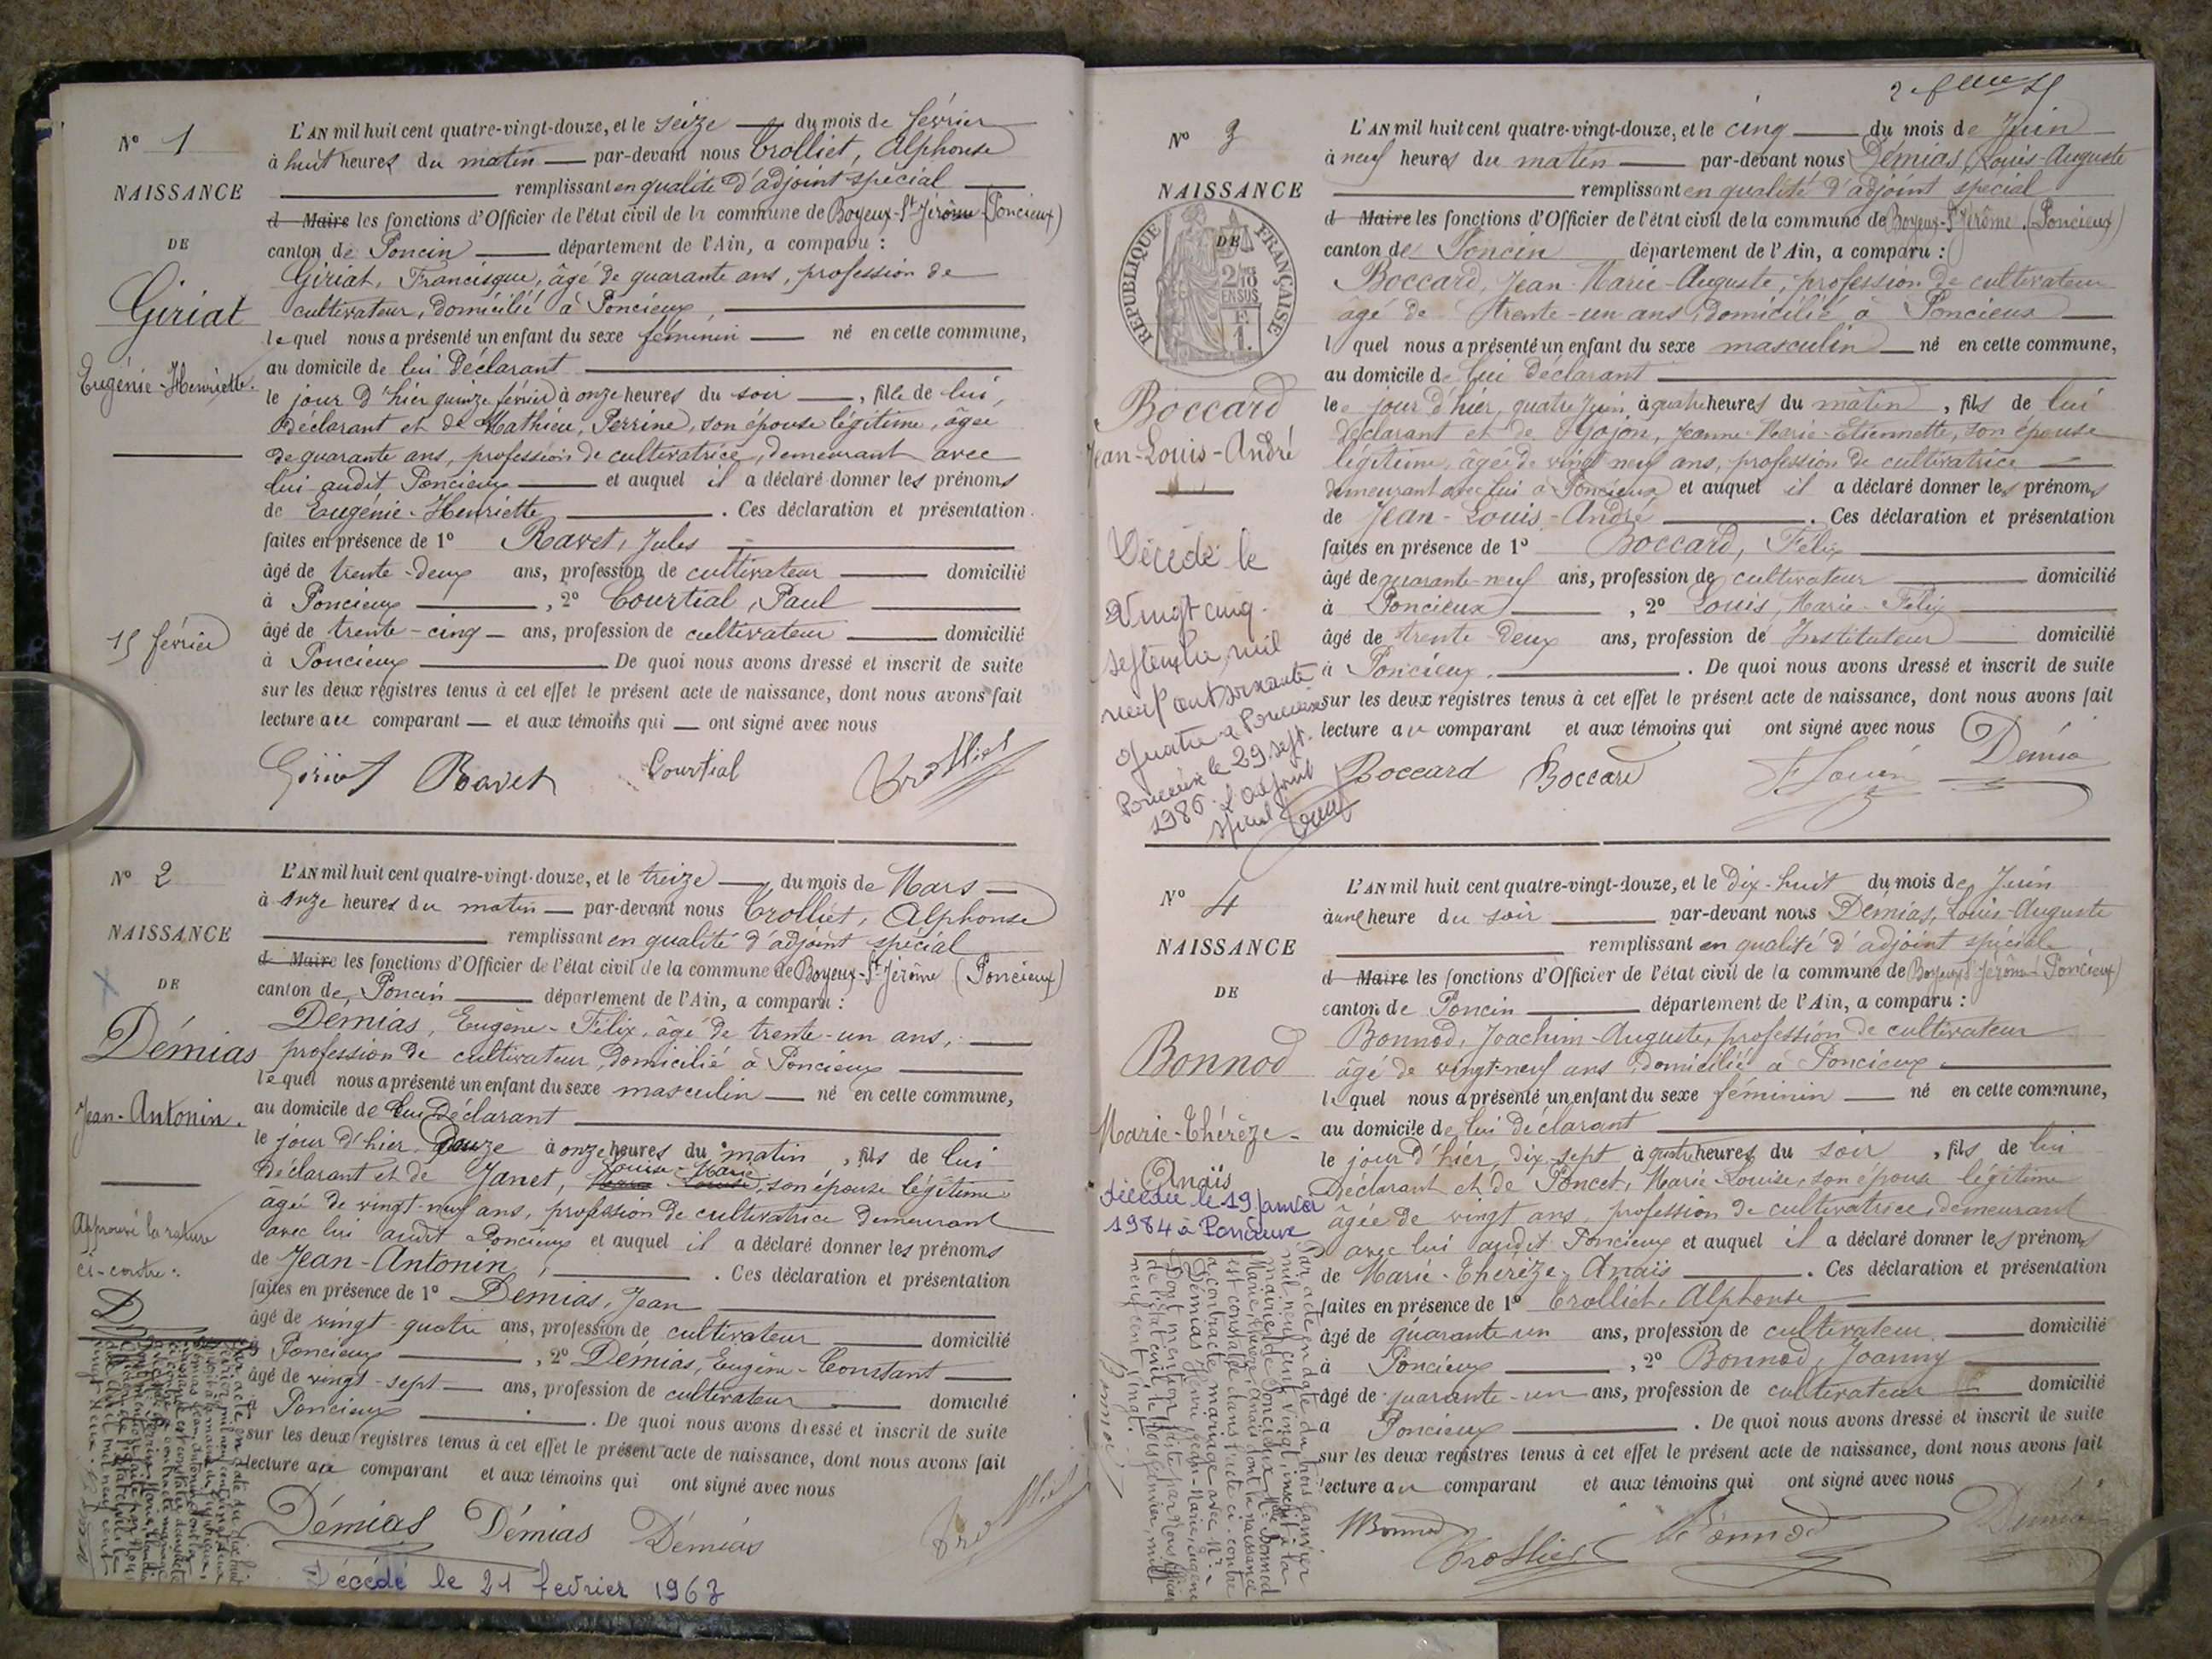 Nº 1
NAISSANCE
DE
Giriat
Eugénie-Henriette.
15 février
L'AN mil huit cent quatre-vingt-douze, et le seize du mois de février
à huit heures du matin par-devant nous Trolliet, Alphonse
remplissant en qualité d'adjoint spécial
d Maire les fonctions d'Officier de l'état civil de la commune de Boyeux-St-Jérôme (Poncieux)
canton de Poncin département de l'Ain, a comparu :
Giriat, Francisque, âgé de quarante ans, profession de
cultivateur, domicilié à Poncieux,
lequel nous a présenté un enfant du sexe féminin né en cette commune,
au domicile de lui Déclarant
le jour d'hier quinze février à onze heures du soir, fille de lui,
déclarant et de Mathieu, Perrine, son épouse légitime, âgée
de quarante ans, profession de cultivatrice, demeurant avec
lui audit Poncieux et auquel il a déclaré donner les prénoms
de Eugénie-Henriette. Ces déclaration et présentation
faites en présence de 1º Ravet, Jules
âgé de trente-deux ans, profession de cultivateur domicilié
à Poncieux, 2º Courtial, Paul
âgé de trente-cinq ans, profession de cultivateur domicilié
à Poncieux. De quoi nous avons dressé et inscrit de suite
sur les deux registres tenus à cet effet le présent acte de naissance, dont nous avons fait
lecture au comparant et aux témoins qui ont signé avec nous
Giriat Ravet Courtial Trolliet
Nº 2
NAISSANCE
DE
Démias
Jean-Antonin.
Approuvé la rature
ci-contre :
D
L'AN mil huit cent quatre-vingt-douze, et le treize du mois de Mars
à onze heures du matin par-devant nous Trolliet, Alphonse
remplissant en qualité d'adjoint spécial
d Maire les fonctions d'Officier de l'état civil de la commune de Boyeux-St-Jérôme (Poncieux)
canton de Poncin département de l'Ain, a comparu :
Démias, Eugène-Félix, âgé de trente-un ans,
profession de cultivateur, domicilié à Poncieux
lequel nous a présenté un enfant du sexe masculin né en cette commune,
au domicile de lui Déclarant
le jour d'hier Douze à onze heures du matin, fils de lui
Déclarant et de Janet, Louise-Marie, son épouse légitime
âgée de vingt-neuf ans, profession de cultivatrice demeurant
avec lui audit Poncieux et auquel il a déclaré donner les prénoms
de Jean-Antonin. Ces déclaration et présentation
faites en présence de 1º Démias, Jean
âgé de vingt-quatre ans, profession de cultivateur domicilié
à Poncieux, 2º Démias, Eugène-Constant
âgé de vingt-sept ans, profession de cultivateur domicilié
à Poncieux. De quoi nous avons dressé et inscrit de suite
sur les deux registres tenus à cet effet le présent acte de naissance, dont nous avons fait
lecture au comparant et aux témoins qui ont signé avec nous
Démias Démias Démias Trolliet
Décédé le 21 fevrier 1963
Nº 3
NAISSANCE
DE
REPUBLIQUE FRANÇAISE
Boccard
Jean-Louis-André
Décédé le
Vingt cinq
septembre mil
neuf cent soixante
quatre à Poncieux
Poncieux le 29 sept.
1986. L'adjoint
spécial
L'AN mil huit cent quatre-vingt-douze, et le cinq du mois de Juin
à neuf heures du matin par-devant nous Démias, Louis-Auguste
remplissant en qualité d'adjoint spécial
d Maire les fonctions d'Officier de l'état civil de la commune de Boyeux-St-Jérôme (Poncieux)
canton de Poncin département de l'Ain, a comparu :
Boccard, Jean-Marie-Auguste, profession de cultivateur
âgé de trente-un ans, domicilié à Poncieux
l quel nous a présenté un enfant du sexe masculin né en cette commune,
au domicile de lui Déclarant
le jour d'hier, quatre Juin à quatre heures du matin, fils de lui
déclarant et de Gojon, Jeanne-Marie-Etiennette, son épouse
légitime, âgée de vingt neuf ans, profession de cultivatrice
demeurant avec lui à Poncieux et auquel il a déclaré donner les prénoms
de Jean-Louis-André. Ces déclaration et présentation
faites en présence de 1º Boccard, Félix
âgé de quarante-neuf ans, profession de cultivateur domicilié
à Poncieux, 2º Louis, Marie-Félix
âgé de trente deux ans, profession de Instituteur domicilié
à Poncieux. De quoi nous avons dressé et inscrit de suite
sur les deux registres tenus à cet effet le présent acte de naissance, dont nous avons fait
lecture au comparant et aux témoins qui ont signé avec nous
Boccard Boccard F. Louis Démia
Nº 4
NAISSANCE
DE
Bonnod
Marie-Thérèze-
Anaïs
décédée le 19 janvier
1984 à Poncieux
Par acte en date du trois janvier
mil neuf cent vingt, inscrit à la
mairie de Poncieux, Melle Bonnod
Marie, Thérèze, Anaïs dont la naissance
est constatée dans l'acte ci-contre
a contracté mariage avec Mr
Démias Henri Jean-Marie, Eugène
Dont mention faite par Nous officier
de l'état civil le trois janvier, mil
neuf cent vingt.
Bonnod
L'AN mil huit cent quatre-vingt-douze, et le Dix-huit du mois de Juin
à une heure du soir par-devant nous Démias, Louis-Auguste
remplissant en qualité d'adjoint spécial
d Maire les fonctions d'Officier de l'état civil de la commune de Boyeux-St-Jérôme (Poncieux)
canton de Poncin département de l'Ain, a comparu :
Bonnod, Joachim-Auguste, profession de cultivateur
âgé de vingt-neuf ans domicilié à Poncieux.
lequel nous a présenté un enfant du sexe féminin né en cette commune,
au domicile de lui déclarant
le jour d'hier, dix-sept à quatre heures du soir, fils de lui
Déclarant et de Poncet, Marie-Louise, son épouse légitime
âgée de vingt ans, profession de cultivatrice, demeurant
avec lui audit Poncieux et auquel il a déclaré donner les prénoms
de Marie-Thérèze-Anaïs. Ces déclaration et présentation
faites en présence de 1º Trolliet, Alphonse
âgé de quarante-un ans, profession de cultivateur domicilié
à Poncieux, 2º Bonnod, Joanny
âgé de quarante-un ans, profession de cultivateur domicilié
a Poncieux. De quoi nous avons dressé et inscrit de suite
sur les deux registres tenus à cet effet le présent acte de naissance, dont nous avons fait
lecture au comparant et aux témoins qui ont signé avec nous
Bonnod Trolliet Bonnod Démias